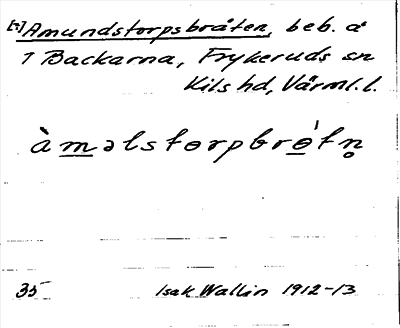 [?] Amundstorpsbråten, beb. å
1 Backarna, Frykeruds sn
Kils hd, Värml. l.
àməlstorpbrớtn̥
35 Isak Wallin 1912-13